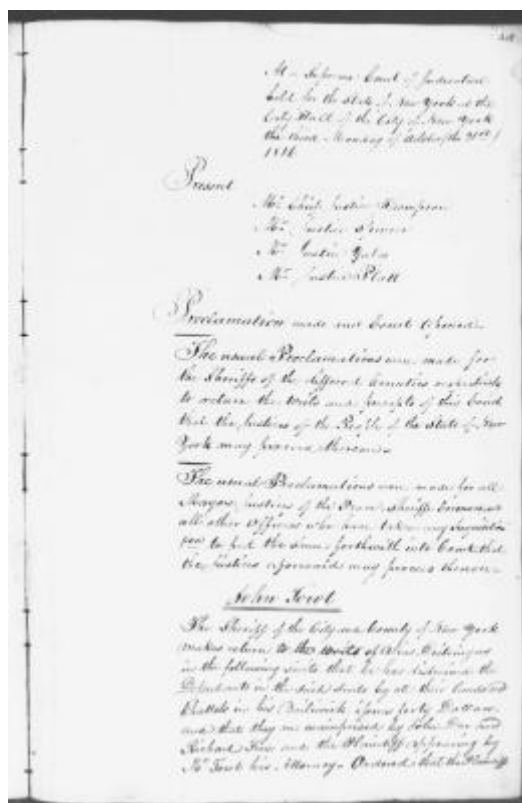 At a Supreme Court of Judicature
held for the State of New York at the
City Hall of the City of New York
the third Monday of October the 21st
1816
Present
Mr. Chief Justice Thompson
Mr. Justice Spencer
Mr. Justice Yates
Mr. Justice Platt
Proclamation made and Court opened
The usual Proclamations were made for
the Sheriffs of the different Counties
to return the writs and precepts of this Court
that the Justices of the People of the State of New
York may proceed thereon
The usual Proclamations were made for all
Mayors Justices of the Peace Sheriffs Coroners
all other Officers who have taken any
to put the same forthwith into Court that
the Justices aforesaid may proceed thereon
John
The Sheriff of the City and County of New York
makes return to the writs of
in the following suits that he has distrained the
Defendants in the said suits by all their lands and
Chattels in his Bailiwick forty
and that they are mainprised by John Doe and
Richard and the Plaintiff appearing by
his Attorney Ordered that the Plaintiff